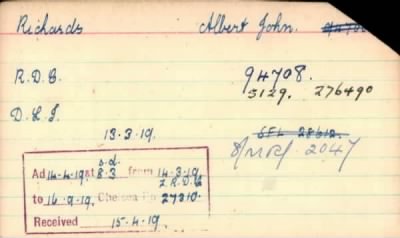 Richards Albert John.
R.D.C. 94708.
3129. 276490
D.L.I.
13.3.19.
2047
s.d.
Ad 14-4-19 at 8.3 from 14-3-19
Z.R.D.C
to 16.9.19, Chelsea No 27210
Received 15-4-19